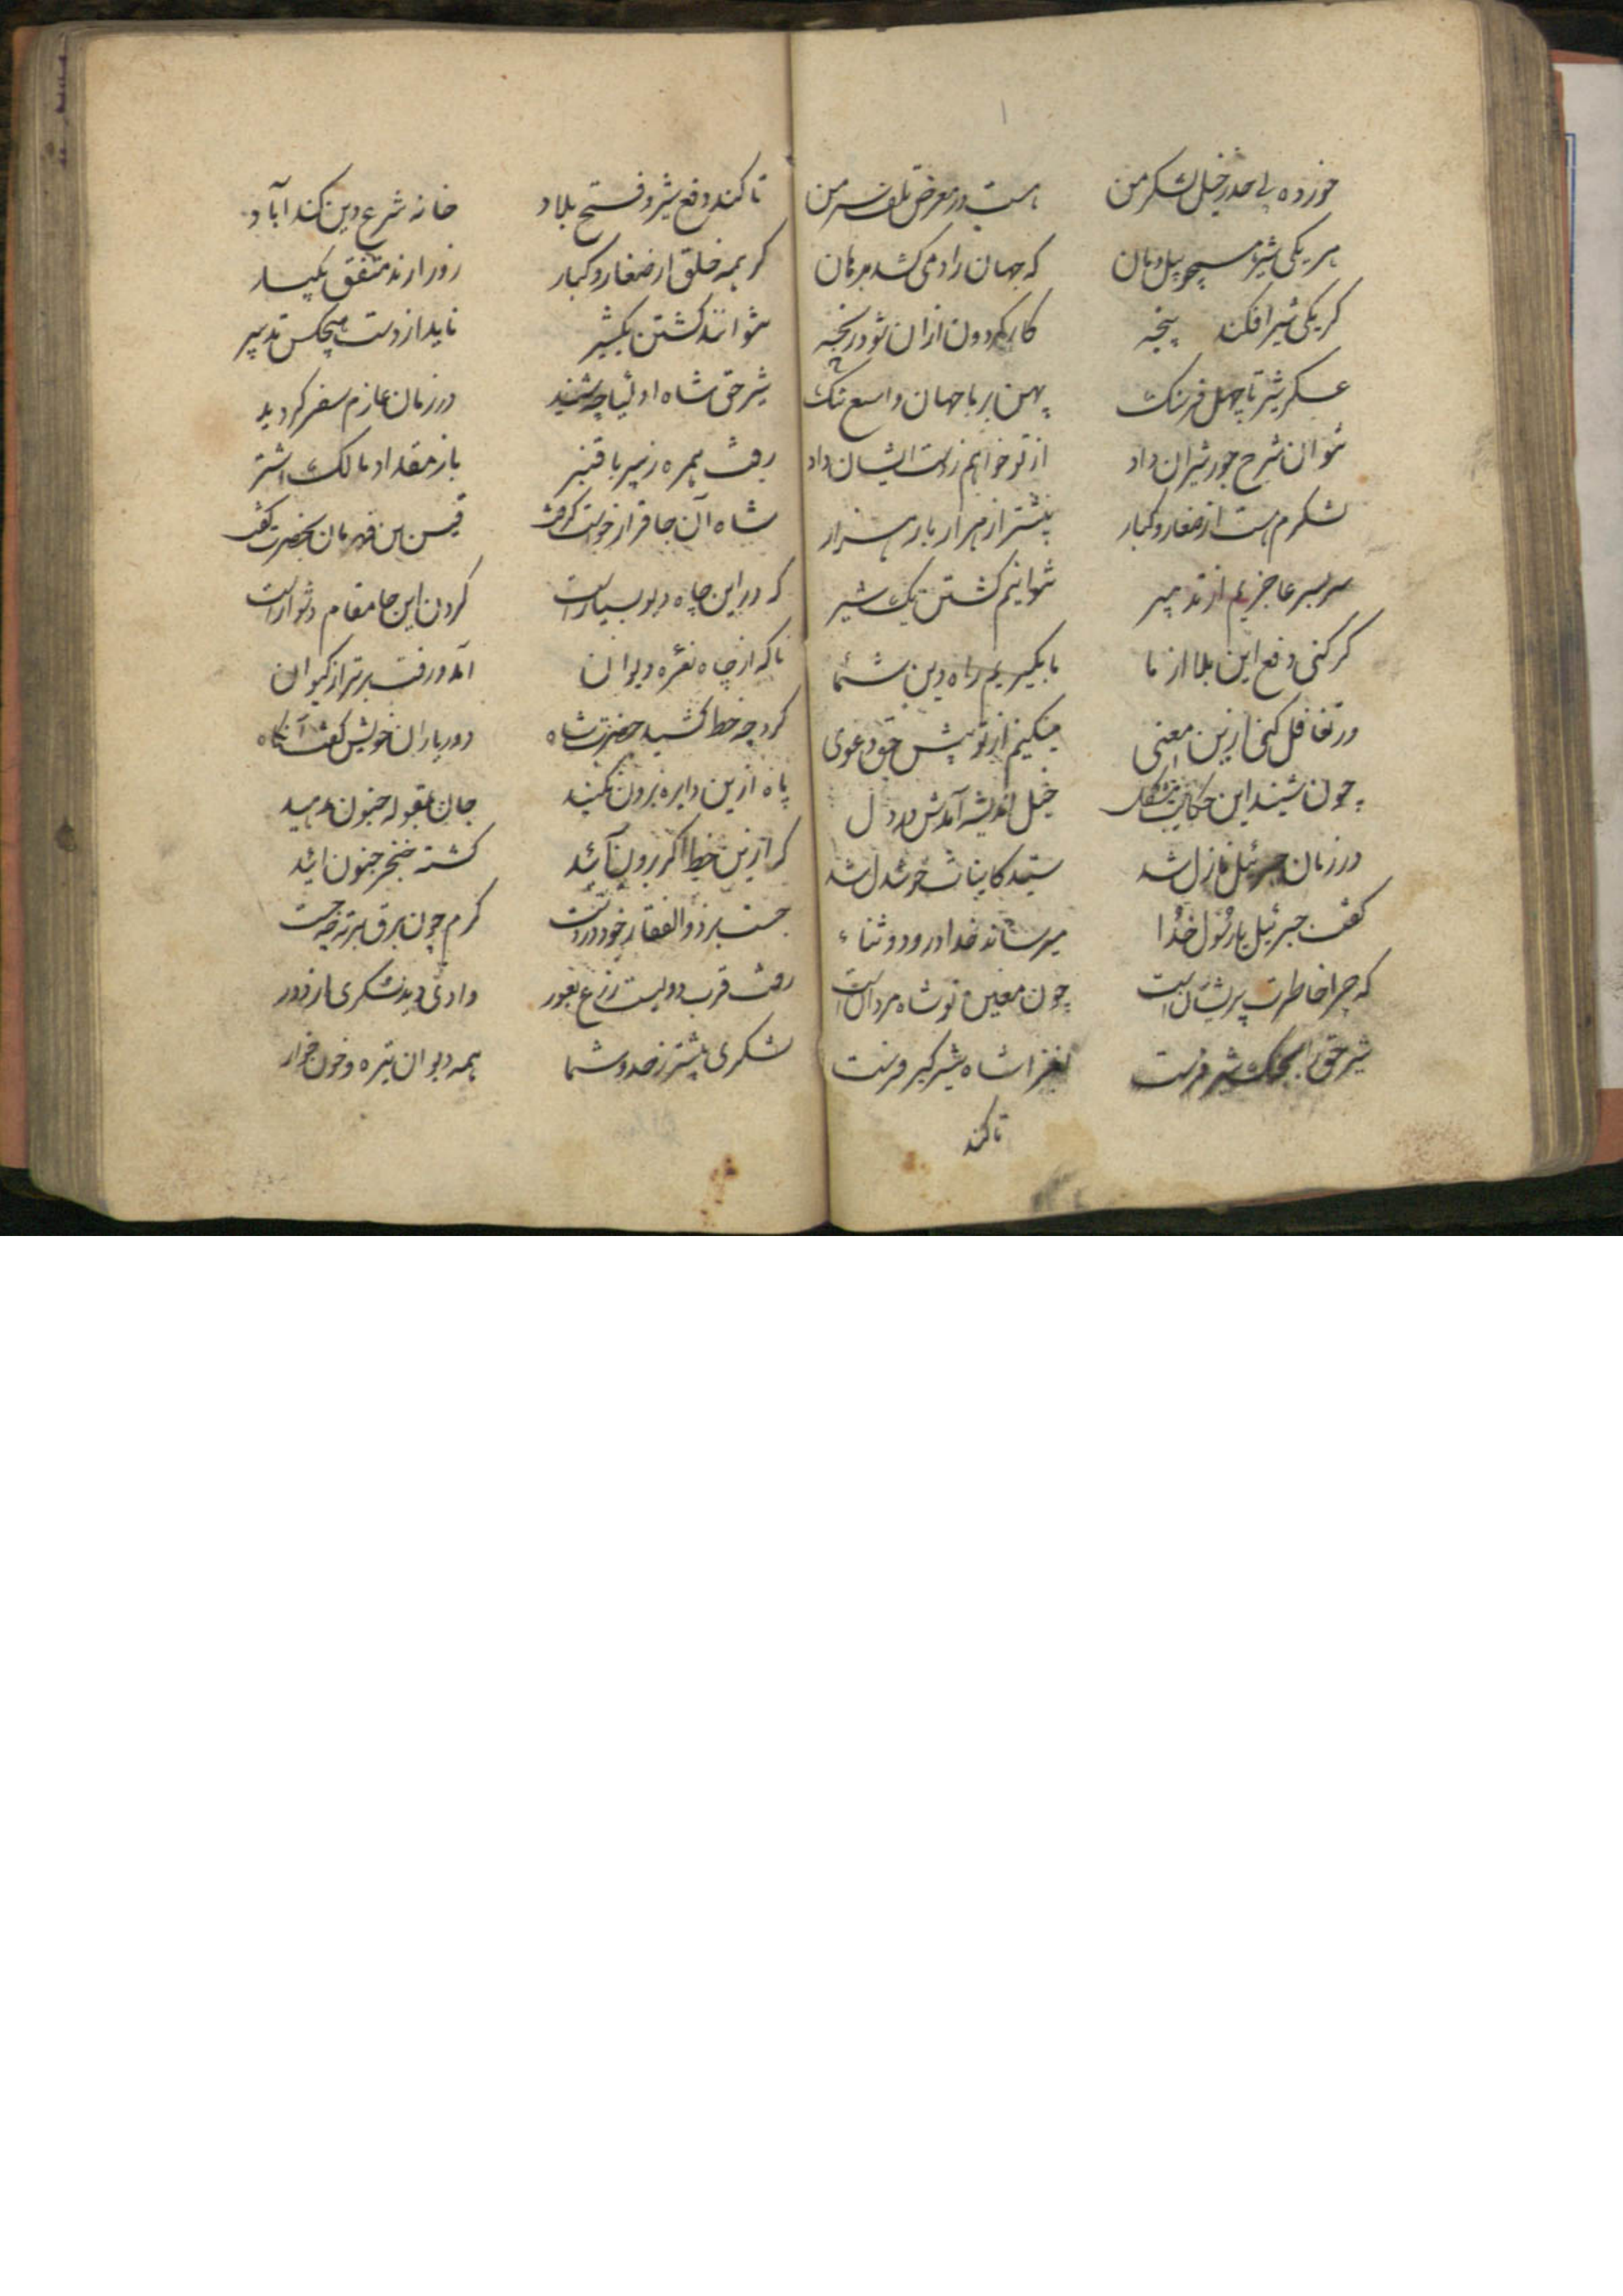 خورده بی حد ز خیل لشکر من هست در معرض تلف سر من
هر یکی شیر همچو پیل دمان که جهان را دمی کشد بر مان
کر یکی شیر افکند پنجه کار کردون ازان شود رنجه
عسکر شیر تا چهل فرسنک پهن بر ما جهان واسع تنک
نتوان شرح جور شیران داد از تو خواهم ز دست ایشان داد
لشکرم هست از صغار و کبار بیشتر از هزار بار هزار
سر بسر عاجزیم از تدبیر نتوانیم کشتن یک شیر
کر کنی دفع این بلا از ما ما بکیریم راه دین شما
ور تغافل کنی ازین معنی میکنیم از تو پیش حق دعوی
چون شنید این حکایت مشکل خیل اندیشه آمدش در دل
در زمان جبرئیل نازل شد سید کاینات خوشدل شد
کفت جبرئیل یا رسول خدا میرساند خدا درود و ثناء
که چرا خاطرت پریشان است چون معین تو شاه مردان است
شیر حق را بجنک شیر فرست بغزا شاه شیرکیر فرست
تا کند
تا کند دفع شیر و فتح بلاد خانه شرع و دین کند آباد
کر همه خلق از صغار و کبار زور ارند متفق یکبار
نتوانند کشتن یکشیر ناید از دست هیچکس تدبیر
شیر حق شاه اولیا چو شنید در زمان عازم سفر کردید
رفت همره زبیر با قنبر باز مقداد مالک اشتر
شاه آن جا قرار خواست کرفت قیس بن قهرمان بحضرت کفت
که در این چاه دیو بسیار است کردن این جا مقام دشوار است
ناکه از چاه نعره دیوان آمد و رفت برتر از کیوان
کرد چه خط کشید حضرت شاه دور یاران خویش کفت آنکاه
پا ازین دایره برون نکنید جان بقبوله جنون مدهید
که ازین خط اکر برون آئید کشته خنجر جنون ائید
جست برد ذوالفقار خود در دست کرم چون برق بر ته چه جست
رفت قرب دویست زرع بغور وادی دید لشکری از دور
لشکری بیشتر ز حد و شما همه دیوان تیره و خون خوار